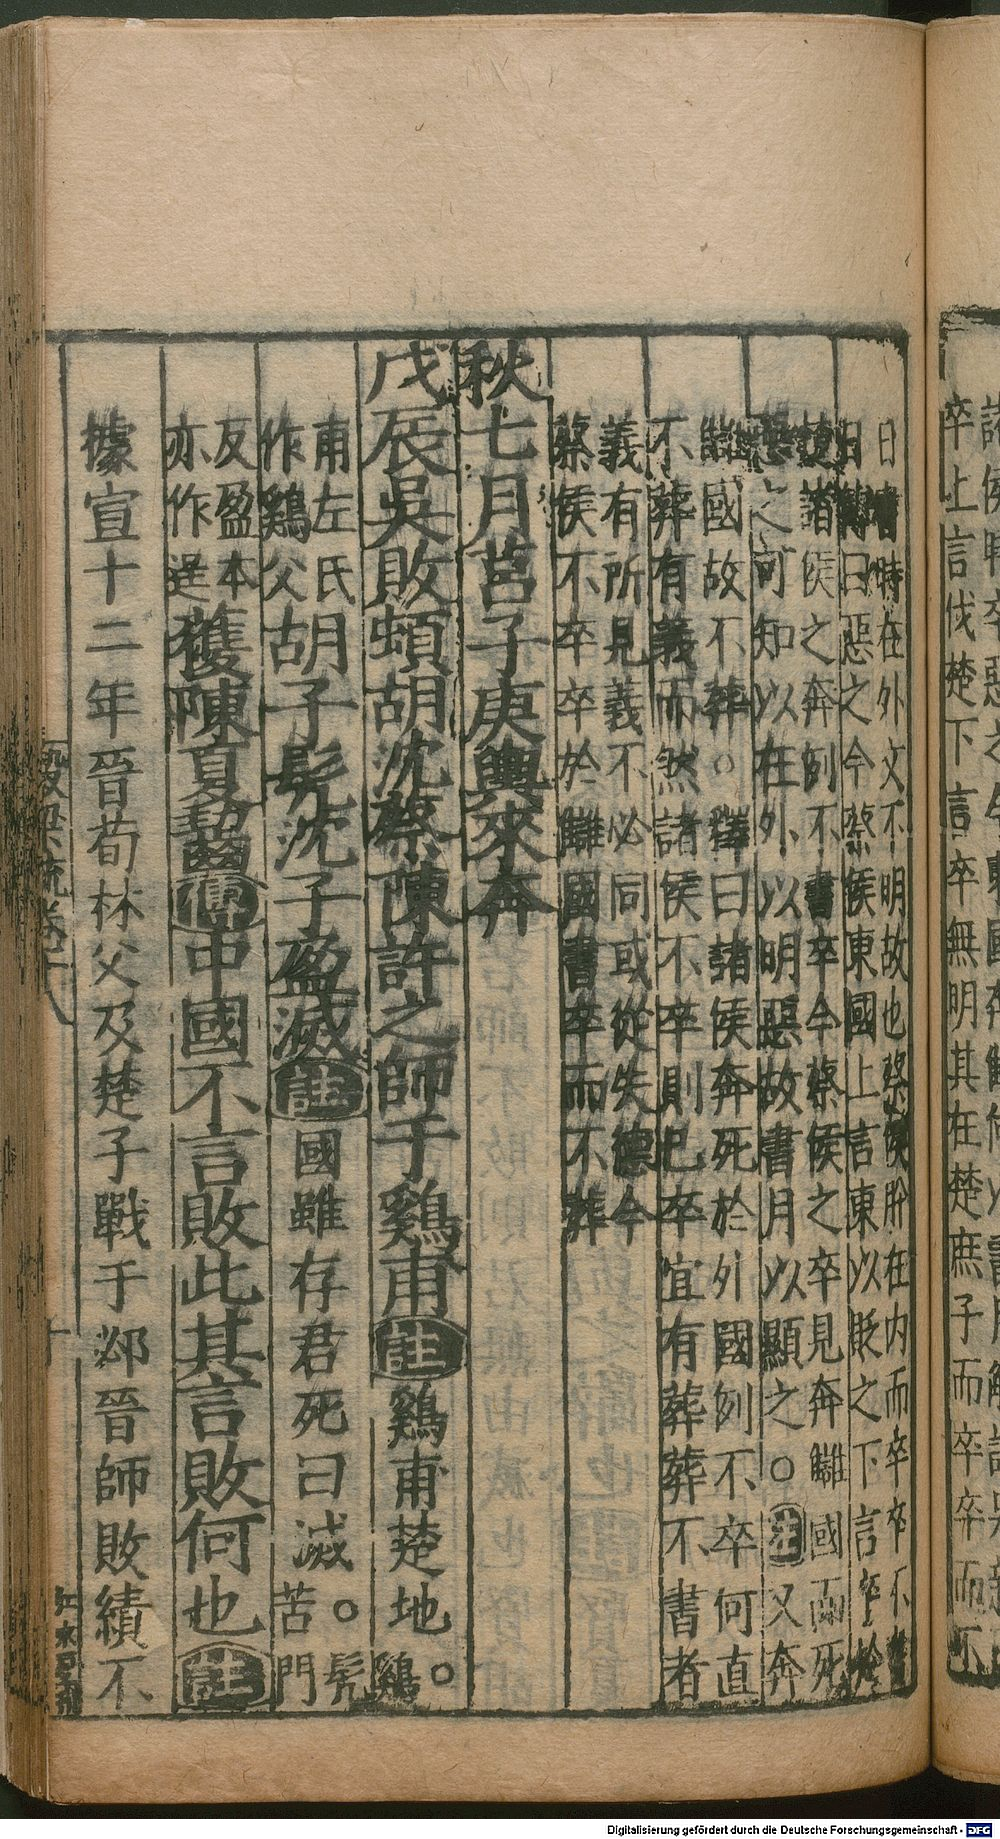 卒上言伐楚下言卒無明其在楚庶子而卒卒而不
日書時在外文不明故也蔡侯肸在内而卒卒不書
日傳曰惡之今蔡侯東國上言東以貶之下言卒於
楚諸侯之奔例不書卒今蔡侯之卒見奔讎國而死
惡之可知以在外以明惡故書月以顯之○注又奔
讎國故不葬○釋曰諸侯奔死於外國例不卒何直
不葬有義而然諸侯不卒則已卒宜有葬葬不書者
義有所見義不必同或從失德今
蔡侯不卒卒於讎國書卒而不葬
秋七月莒子庚輿來奔
戊辰吳敗頓胡沈蔡陳許之師于鷄甫註鷄甫楚地○鷄
甫左氏作鷄父胡子髡沈子盈滅註國雖存君死曰滅○髡苦門
反盈本亦作逞獲陳夏齧傳中國不言敗此其言敗何也註
據宣十二年晉荀林父及楚子戰于邲晉師敗績不
Digitalisierung gefördert durch die Deutsche Forschungsgemeinschaft - DFG